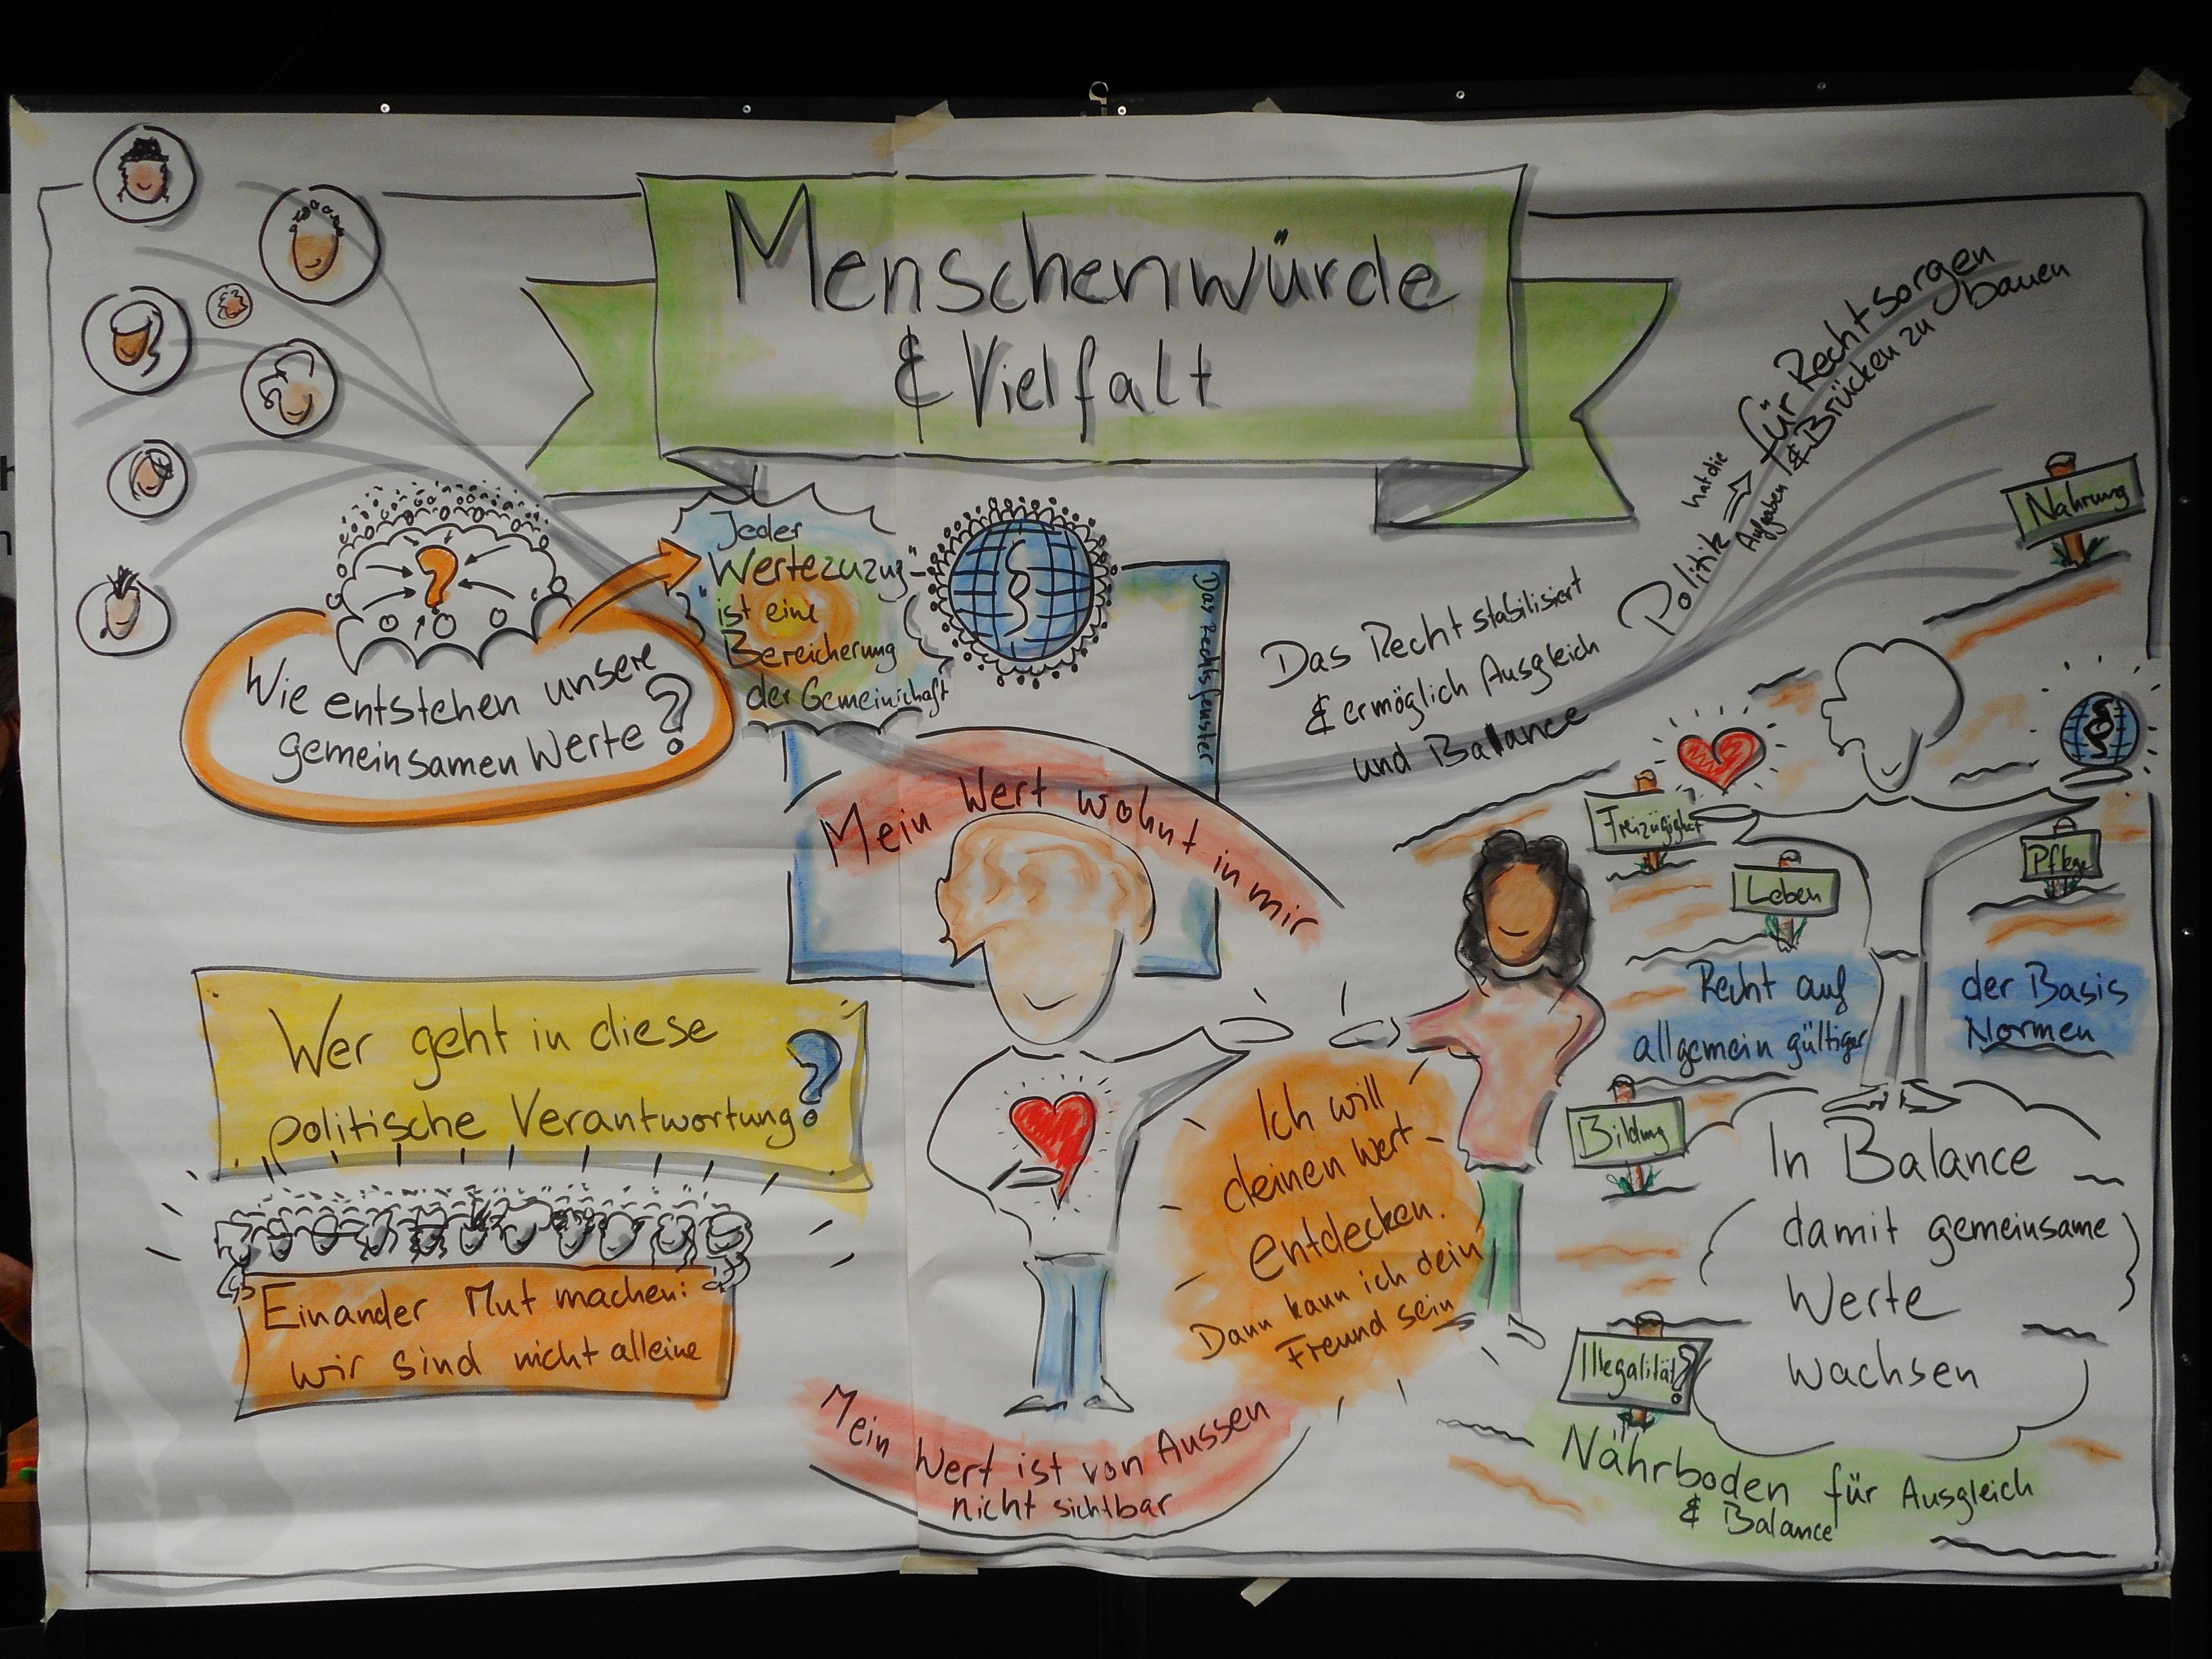 Menschenwürde
& Vielfalt
Jeder
Wertezuzug
ist eine
Bereicherung
der Gemeinschaft
Wie entstehen unsere
gemeinsamen Werte?
Das Rechtsfenster
Das Recht stabilisiert
& ermöglich Ausgleich
und Balance
Politik hat die Aufgaben
für Recht sorgen
& Brücken zu bauen
Nahrung
Freizügigkeit
Leben
Pflege
Recht auf
allgemein gültiger
der Basis
Normen
Bildung
Illegalität?
In Balance
damit gemeinsame
Werte
wachsen
Nährboden für Ausgleich
& Balance
Mein Wert wohnt in mir
Ich will
deinen Wert
entdecken.
Dann kann ich dein
Freund sein
Mein Wert ist von Aussen
nicht sichtbar
Wer geht in diese
politische Verantwortung?
Einander Mut machen:
wir sind nicht alleine